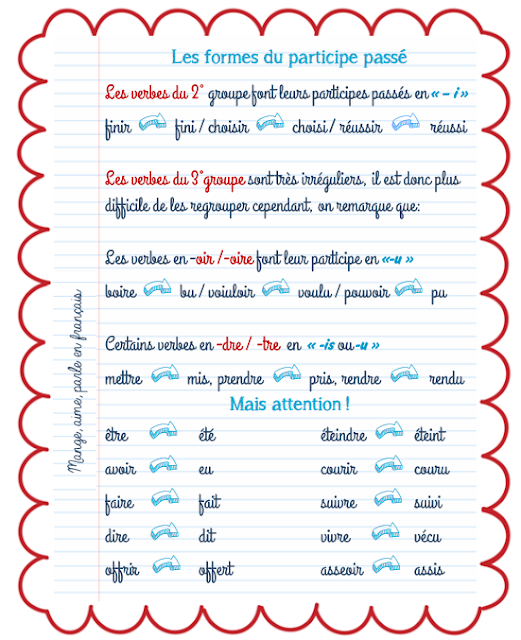 Les formes du participe passé
Les verbes du 2° groupe font leurs participes passés en « – i »
finir fini / choisir choisi / réussir réussi
Les verbes du 3°groupe sont très irréguliers, il est donc plus
difficile de les regrouper cependant, on remarque que:
Les verbes en -oir /-oire font leur participe en «-u »
boire bu / voiuloir voulu / pouvoir pu
Certains verbes en -dre / -tre en « -is ou -u »
mettre mis, prendre pris, rendre rendu
Mais attention !
être été éteindre éteint
avoir eu courir couru
faire fait suivre suivi
dire dit vivre vécu
offrir offert asseoir assis
Mange, aime, parle en français